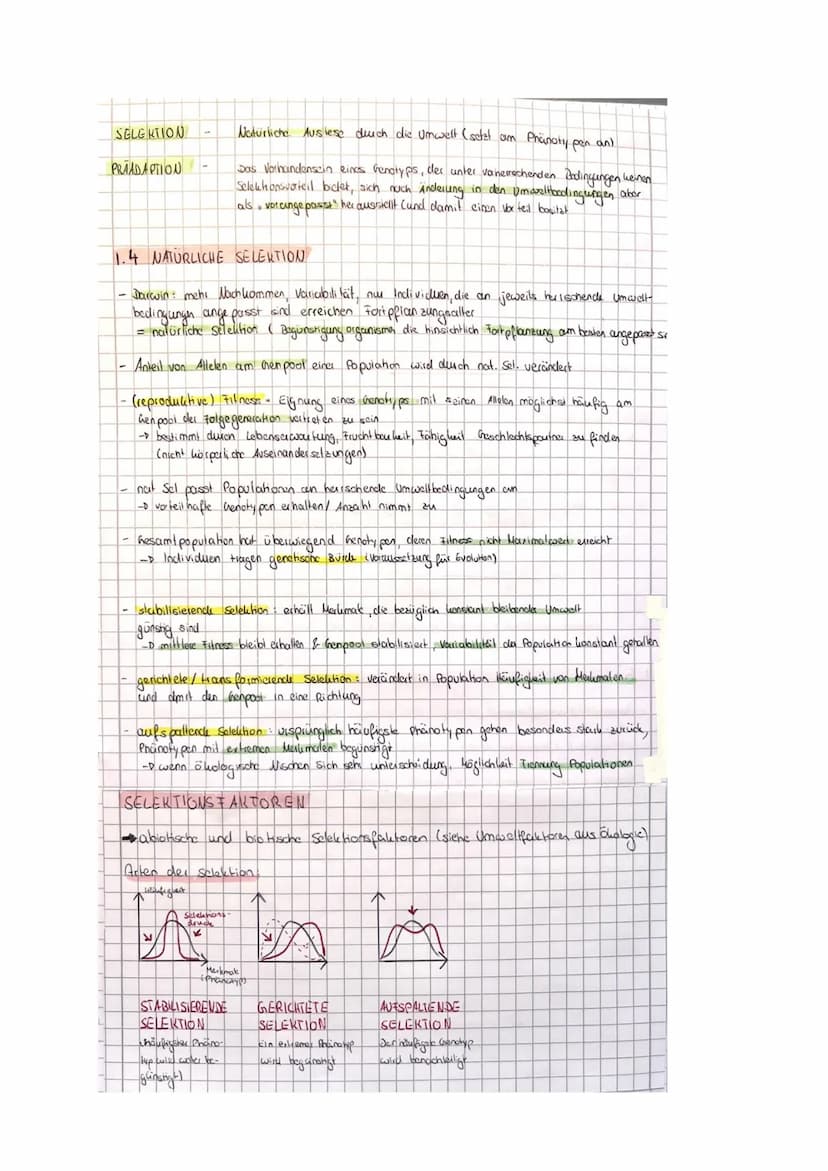 SELEKTION - Natürliche Auslese durch die Umwelt (setzt am Phänotypen an)
PRÄADAPTION - Das Vorhandensein eines Genotyps, der unter vorherrschenden Bedingungen keinen
Selektionsvorteil bietet, sich nach Änderung in den Umweltbedingungen aber
als "vorangepasst" herausstellt (und damit einen Vorteil besitzt
1.4 NATÜRLICHE SELEKTION
- Darwin: mehr Nachkommen, Variabilität, nur Individuen, die an jeweils herrschende Umwelt-
bedingungn angepasst sind erreichen Fortpflanzungsalter
= natürliche Selektion (Begünstigung organismen die hinsichtlich Fortpflanzung am besten angepasst si
- Anteil von Allelen am Genpool einer Population wird durch nat. Sel. verändert
- (reproduktive) Fitness = Eignung eines Genotyps mit seinen Allelen möglichst häufig am
Genpool der Folgegeneration vertreten zu sein
→ bestimmt durch Lebenserwartung, Fruchtbarkeit, Fähigkeit Geschlechtspartner zu finden
(nicht körperliche Auseinandersetzungen)
- nat Sel passt Populationen an herrschende Umweltbedingungen an
→ vorteilhafte Genotypen erhalten/ Anzahl nimmt zu
- Gesamtpopulation hat überwiegend Genotypen, deren Fitness nicht Maximalwert erreicht
→ Individuen tragen genetische Bürde (Voraussetzung für Evolution)
- stabilisierende Selektion: erhält Merkmale, die bezüglich konstant bleibender Umwelt
günstig sind
→ mittlere Fitness bleibt erhalten & Genpool stabilisiert, Variabilität der Population konstant gehalten
- gerichtete/ transformierende Selektion: verändert in Population Häufigkeit von Merkmalen
und dmit den Genpool in eine Richtung
- aufspaltende Selektion: ursprünglich häufigste Phänotypen gehen besonders stark zurück,
Phänotypen mit extremen Merkmalen begünstigt
→ wenn ökologische Nischen sich sehr unterscheidung, Möglichkeit Trennung Populationen
SELEKTIONSFAKTOREN
→ abiotische und biotische Selektionsfaktoren (siehe Umweltfaktoren aus Ökologie)
Arten der Selektion:
Häufigkeit
Selektions-
druck
Merkmal
(Phänotyp)
STABILISIERENDE
SELEKTION
(häufigster Phäno-
typ wird weiter be-
günstigt)
GERICHTETE
SELEKTION
Ein extremer Phänotyp
wird begünstigt
AUFSPALTENDE
SELEKTION
Der häufigste Genotyp
wird benachteiligt